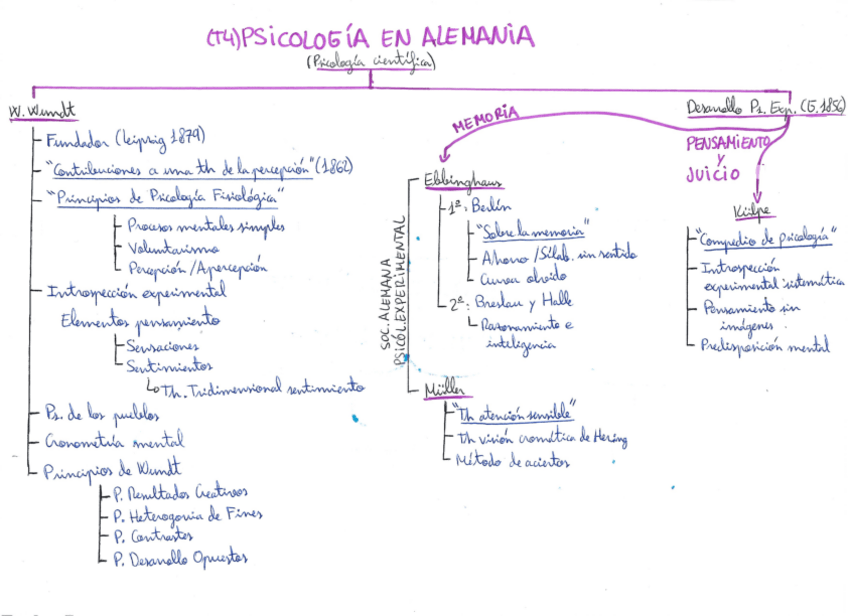 (T4) PSICOLOGÍA EN ALEMANIA
(Psicología científica)
W. Wundt
Fundador (Leipzig 1879)
"Contribuciones a una th de la percepción" (1862)
"Principios de Psicología Fisiológica"
Procesos mentales simples
Voluntarismo
Percepción / Apercepción
Introspección experimental
Elementos pensamiento
Sensaciones
Sentimientos
Th. Tridimensional sentimiento
Ps. de los pueblos
Cronometría mental
Principios de Wundt
P. Resultados Creativos
P. Heterogonia de Fines
P. Contrastes
P. Desarrollo Opuestos
Desarrollo Ps. Exp. (G. 1856)
MEMORIA
PENSAMIENTO
Y
JUICIO
SOC. ALEMANA
PSICOL. EXPERIMENTAL
Ebbinghaus
1ª: Berlín
"Sobre la memoria"
Ahorro / Sílab. sin sentido
Curva olvido
2ª: Breslau y Halle
Razonamiento e
inteligencia
Müller
"Th atención sensible"
Th visión cromática de Hering
Método de aciertos
Külpe
"Compedio de psicología"
Introspección
experimental sistemática
Pensamiento sin
imágenes.
Predisposición mental